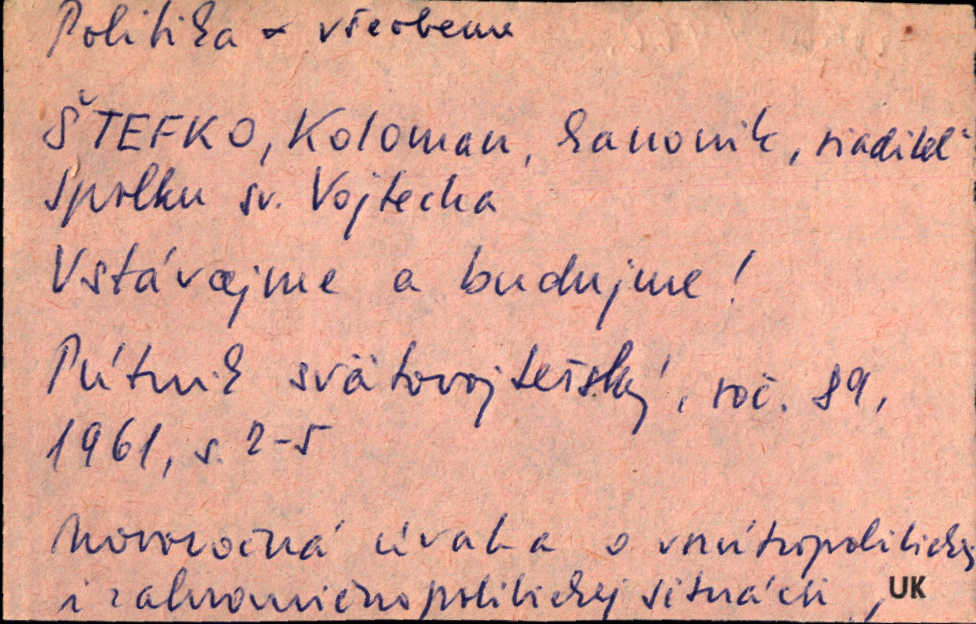 Politika - všeobecne
ŠTEFKO, Koloman, kanonik, riaditeľ
Spolku sv. Vojtecha
Vstávajme a budujme!
Pútnik svätovojtešský, roč. 89,
1961, s. 2-5
Novoročná úvaha o vnútropolitickej
i zahraničnopolitickej situácii
UK